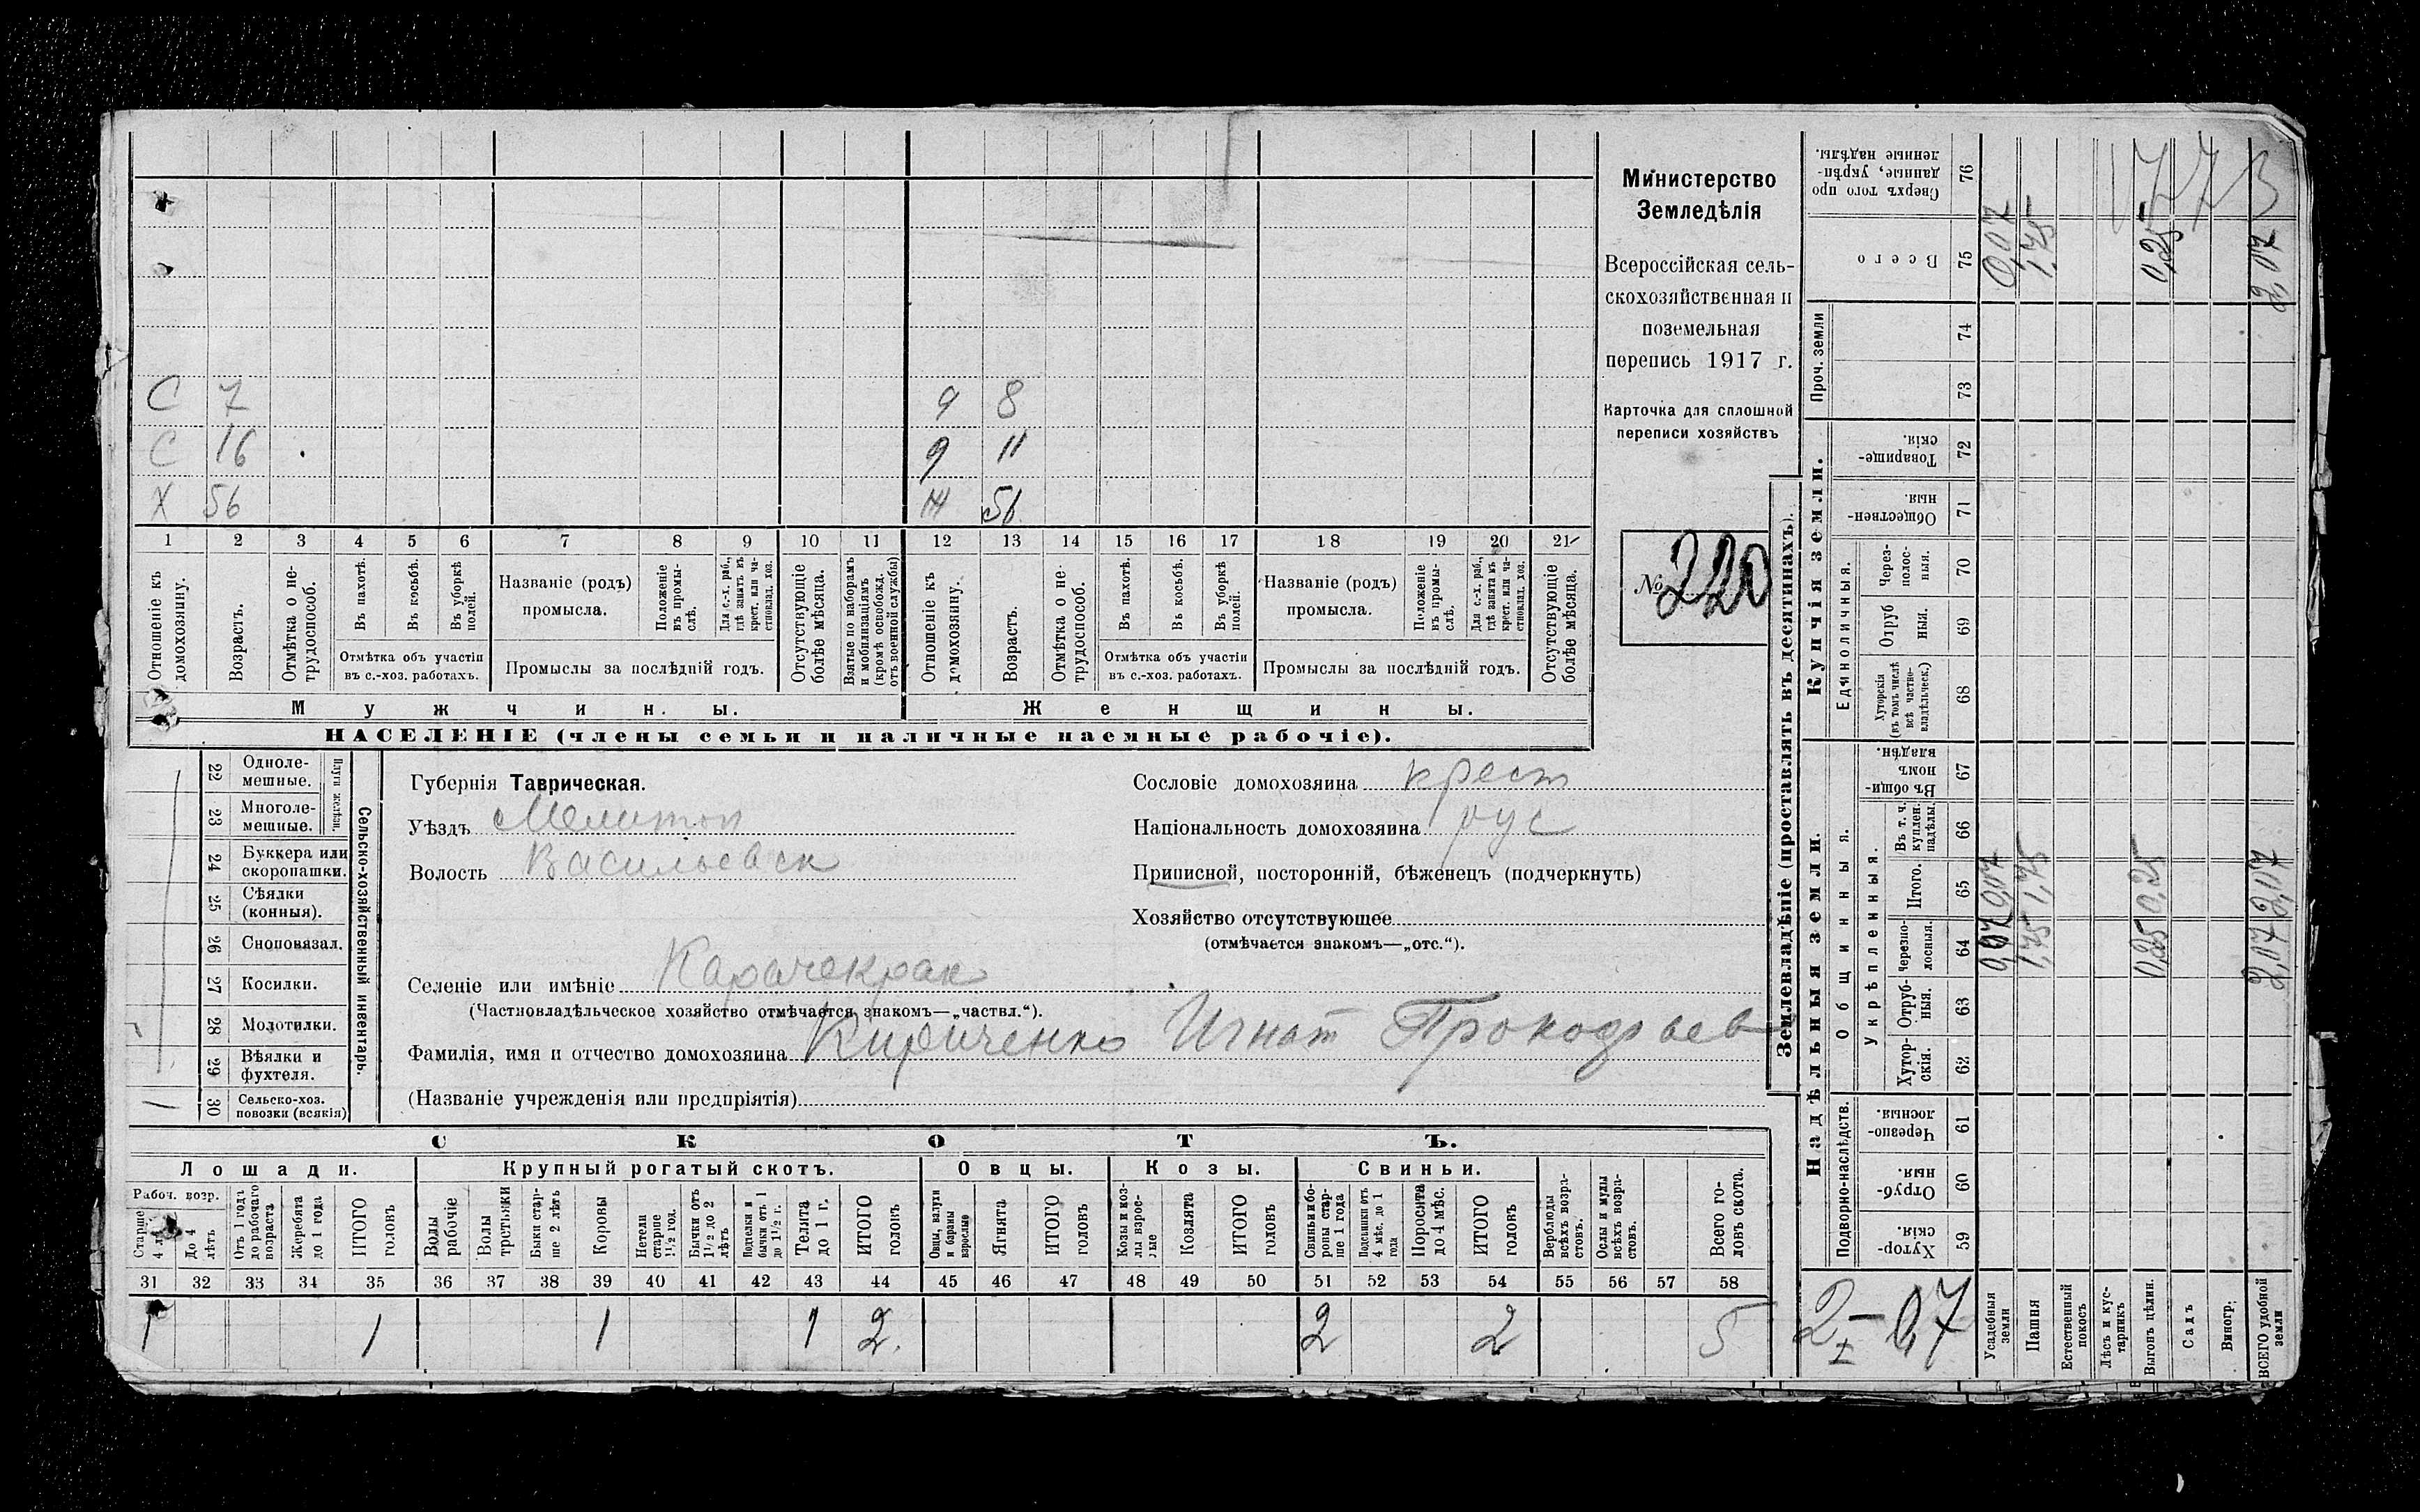 Министерство
Земледѣлія
Всероссійская сель-
скохозяйственная и
поземельная
перепись 1917 г.
Карточка для сплошной
переписи хозяйствъ
№ 220
С 7
С 16
Х 56
д 8
д 11
Ж 56
1 2 3 4 5 6 7 8 9 10 11 12 13 14 15 16 17 18 19 20 21
Отношеніе къ домохозяину.
Возрастъ.
Отмѣтка о не-трудоспособ.
Въ пахотѣ.
Въ косьбѣ.
Въ уборкѣ полей.
Отмѣтка объ участіи
въ с.-хоз. работахъ.
Названіе (родъ)
промысла.
Положеніе въ промы-слѣ.
Для с.-х. раб., гдѣ занятъ въ крест. или ча-стновлад. хоз.
Промыслы за послѣдній годъ.
Отсутствующіе болѣе мѣсяца.
Взятые по наборамъ и мобилизаціямъ (кромѣ освобожд. отъ военной службы)
Отношеніе къ домохозяину.
Возрастъ.
Отмѣтка о не-трудоспособ.
Въ пахотѣ.
Въ косьбѣ.
Въ уборкѣ полей.
Отмѣтка объ участіи
въ с.-хоз. работахъ.
Названіе (родъ)
промысла.
Положеніе въ промы-слѣ.
Для с.-х. раб., гдѣ занята въ крест. или ча-стновлад. хоз.
Промыслы за послѣдній годъ.
Отсутствующіе болѣе мѣсяца.
Мужчины.
Женщины.
НАСЕЛЕНІЕ (члены семьи и наличные наемные рабочіе).
22 Одноле-мешные.
23 Многоле-мешные.
Плуги желѣзн.
24 Буккера или скоропашки.
25 Сѣялки (конныя).
26 Сноповязал.
27 Косилки.
28 Молотилки.
29 Вѣялки и фухтеля.
30 Сельско-хоз. повозки (всякія) 1
Сельско-хозяйственный инвентарь.
Губернія Таврическая.
Уѣздъ Мелитоп
Волость Васильевск
Сословіе домохозяина крест
Національность домохозяина рус
Приписной, посторонній, бѣженецъ (подчеркнуть)
Хозяйство отсутствующее
(отмѣчается знакомъ—„отс.“).
Селеніе или имѣніе Карачекрак
(Частновладѣльческое хозяйство отмѣчается знакомъ—„частвл.“).
Фамилія, имя и отчество домохозяина Кириченко Игнат Прокофьев
(Названіе учрежденія или предпріятія)
СКОТЪ.
Лошади.
Крупный рогатый скотъ.
Овцы.
Козы.
Свиньи.
Рабоч. возр.
Старше 4 л.
До 4 лѣтъ
Отъ 1 года до рабочаго возраста
Жеребята до 1 года
ИТОГО головъ
Волы рабочіе
Волы третьяки
Быки стар-ше 2 лѣтъ
Коровы
Нетели старше 1½ год.
Бычки отъ 1½ до 2 лѣтъ
Подтелки и бычки отъ 1 до 1½ г.
Телята до 1 г.
ИТОГО головъ
Овцы, валухи и бараны взрослые
Ягнята
ИТОГО головъ
Козы и коз-лы взрос-лые
Козлята
ИТОГО головъ
Свиньи и бо-ровы стар-ше 1 года
Подсвинки отъ 4 мѣс. до 1 года
Поросята до 4 мѣс.
ИТОГО головъ
Верблюды всѣхъ возра-стовъ.
Ослы и мулы всѣхъ возра-стовъ.
Всего го-ловъ скота.
31 32 33 34 35 36 37 38 39 40 41 42 43 44 45 46 47 48 49 50 51 52 53 54 55 56 57 58
1 1 1 1 2 2 2 5
Землевладѣніе (проставлять въ десятинахъ).
Надѣльныя земли.
Купчія земли.
Проч. земли
Подворно-наслѣдств.
Общинныя.
Укрѣпленныя.
Единоличныя.
Сверхъ того про данные, укрѣп-ленные надѣлы. 76
Всего 75
74
73
Товарище-скія. 72
Обществен-ныя. 71
Через-полос-ныя. 70
Отруб ныя. 69
Хуторскія (въ томъ числѣ всѣ частно-владѣльческ.) 68
Въ общи-номъ владѣн. 67
Въ т. ч. куплен. надѣлы. 66
Итого. 65
Черезпо-лосныя. 64
Отруб-ныя. 63
Хутор-скія. 62
Черезпо-лосныя. 61
Отруб-ныя. 60
Хутор-скія. 59
Усадебныя земли 0,07 0,07 0,07
Пашня 1,75 1,75 1,75
Естественный покосъ
Лѣсъ и кус-тарникъ
Выгонъ цѣлин. 0,25 0,25 0,25
Садъ
Виногр.
ВСЕГО удобной земли 2,07 2,07 2,07